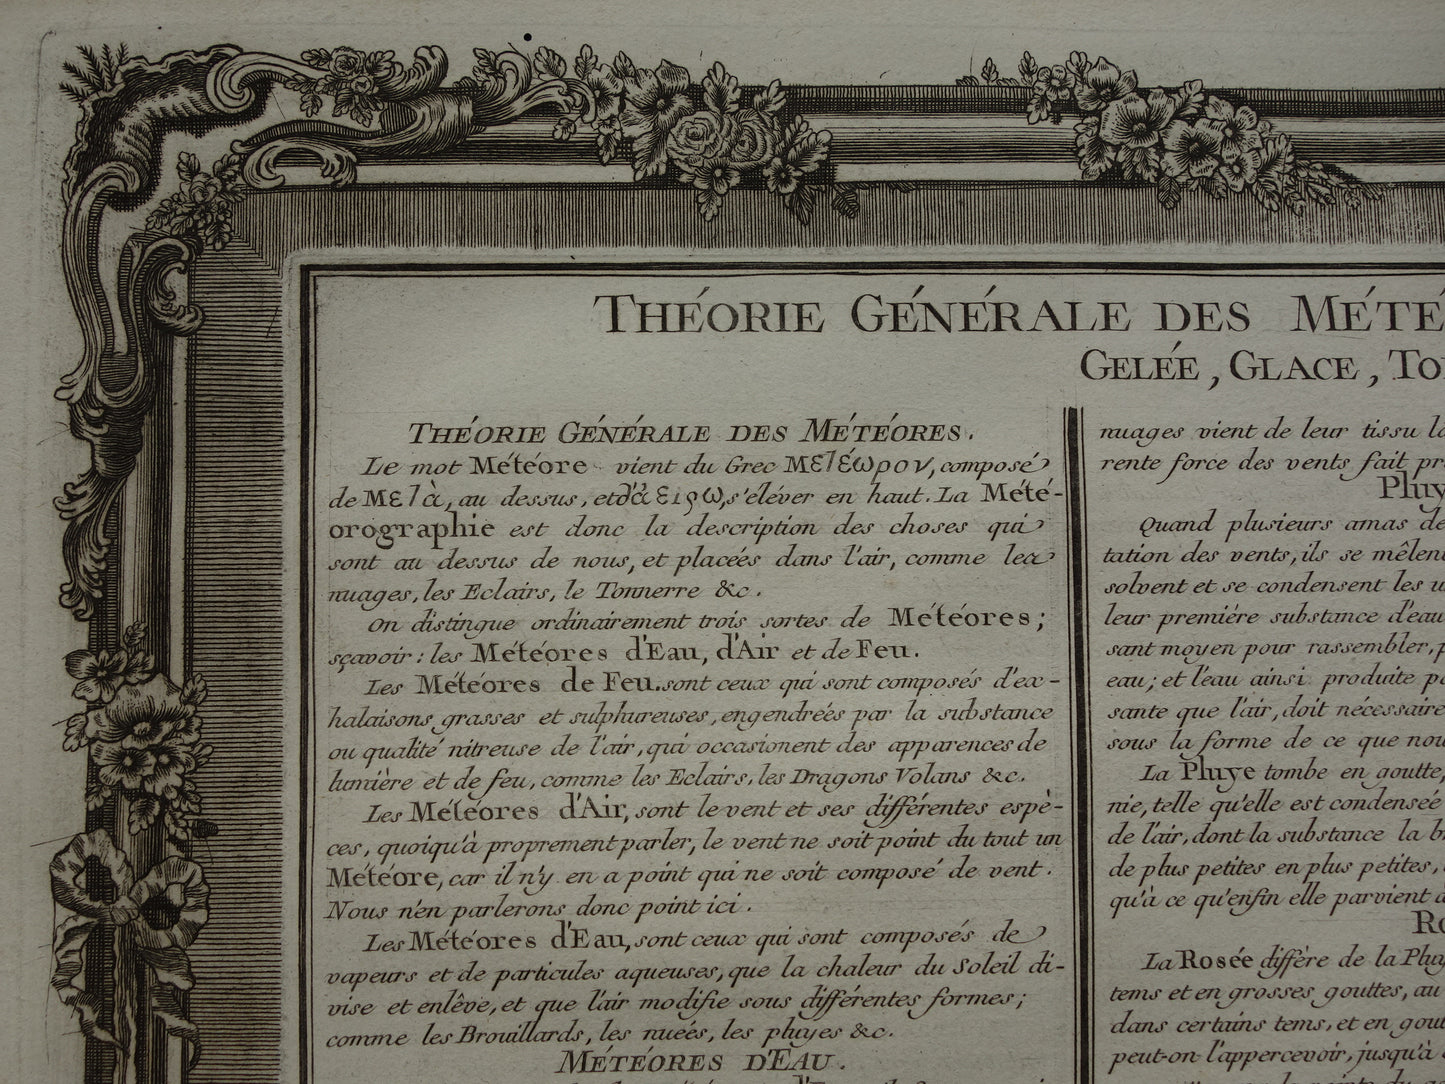 THÉORIE GÉNÉRALE DES MÉTÉ
GELÉE, GLACE, TO
THÉORIE GÉNÉRALE DES MÉTÉORES.
Le mot Météore vient du Grec Μεἰέωρον, composé
de Μεἰὰ, au dessus, et d'ἀείρω, s'éléver en haut. La Mété-
orographie est donc la description des choses qui
sont au dessus de nous, et placeés dans l'air, comme les
nuages, les Eclairs, le Tonnerre &c.
On distingue ordinairement trois sortes de Météores;
sçavoir: les Météores d'Eau, d'Air et de Feu.
Les Météores de Feu. sont ceux qui sont composés d'ex-
halaisons grasses et sulphureuses, engendreés par la substance
ou qualité nitreuse de l'air, qui occasionent des apparences de
lumière et de feu, comme les Eclairs, les Dragons Volans &c.
Les Météores d'Air, sont le vent et ses différentes espè-
ces, quoiqu'à proprement parler, le vent ne soit point du tout un
Météore, car il n'y en a point qui ne soit composé de vent.
Nous n'en parlerons donc point ici.
Les Météores d'Eau, sont ceux qui sont composés de
vapeurs et de particules aqueuses, que la chaleur du Soleil di-
vise et enlêve, et que l'air modifie sous différentes formes;
comme les Brouillards, les nueés, les pluyes &c.
MÉTÉORES D'EAU.
nuages vient de leur tissu la
rente force des vents fait pr
Pluy
Quand plusieurs amas de
tation des vents, ils se mêlen
solvent et se condensent les u
leur premiére substance d'eau
sant moyen pour rassembler, p
eau; et l'eau ainsi produite pa
sante que l'air, doit nécessaire
sous la forme de ce que nou
La Pluye tombe en goutte,
nie, telle qu'elle est condenseé
de l'air, dont la substance la b
de plus petites en plus petites,
qu'à ce qu'enfin elle parvient a
Ro
La Roseé diffère de la Pluy
tems et en grosses gouttes, au
dans certains tems, et en gout
peut-on l'appercevoir, jusqu'à